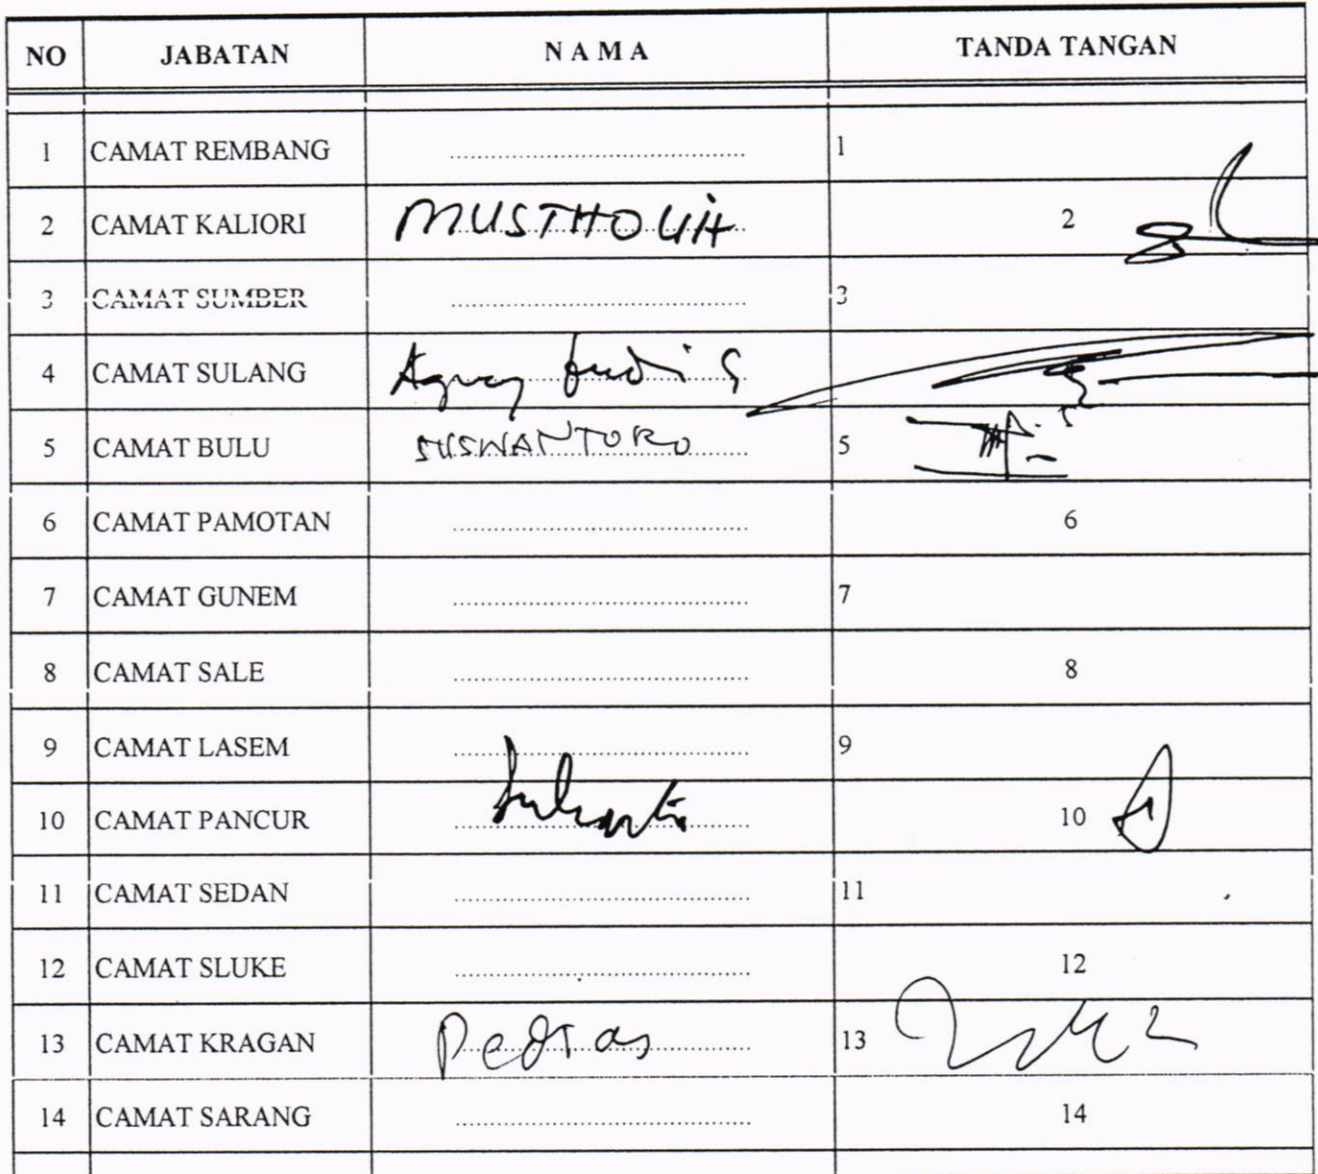 NO JABATAN N A M A TANDA TANGAN
1 CAMAT REMBANG .................... 1
2 CAMAT KALIORI MUSTHOLIH 2
3 CAMAT SUMBER .................... 3
4 CAMAT SULANG Agus
5 CAMAT BULU SUSWANTORO 5
6 CAMAT PAMOTAN .................... 6
7 CAMAT GUNEM .................... 7
8 CAMAT SALE .................... 8
9 CAMAT LASEM .................... 9
10 CAMAT PANCUR 10
11 CAMAT SEDAN .................... 11
12 CAMAT SLUKE .................... 12
13 CAMAT KRAGAN 13
14 CAMAT SARANG .................... 14